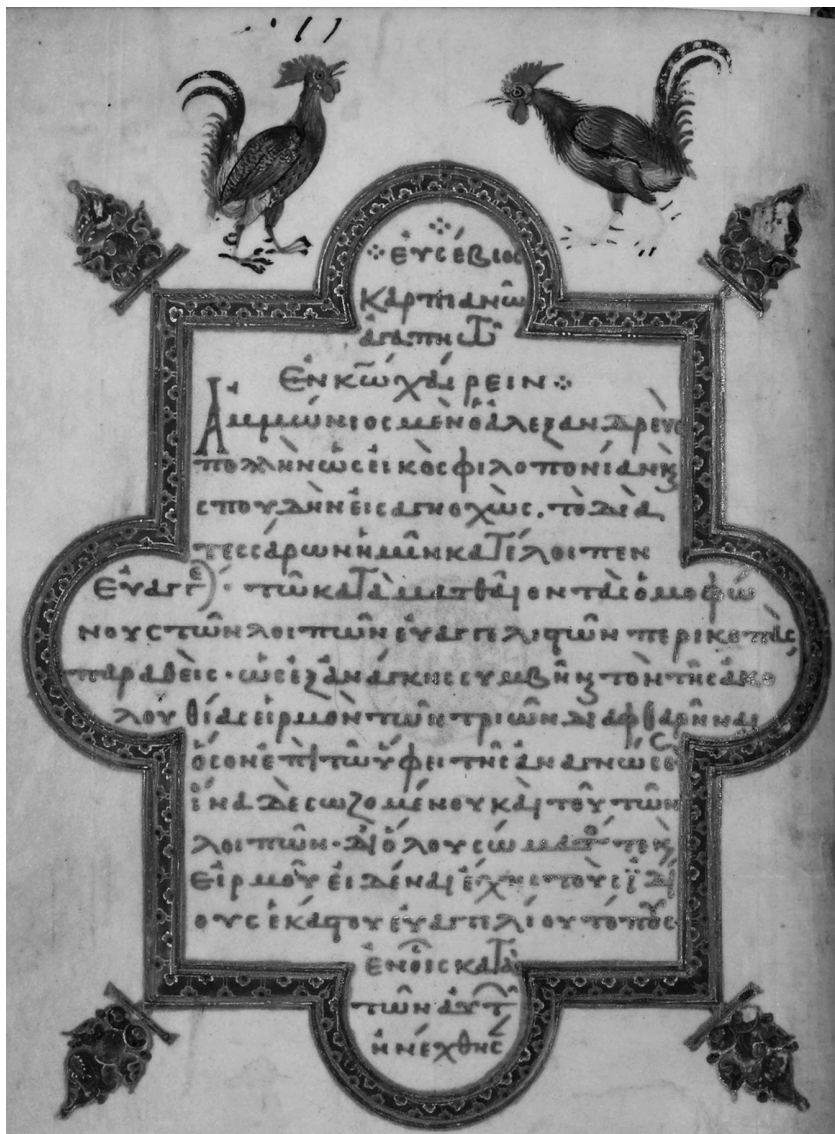 ⁘ Εὐσέβιος
Καρπιανῶ
ἀγαπητῶ
ἐν κῶ χαίρειν ⁘
Ἀμμώνιος μὲν ὁ ἀλεξανδρεὺς
πολλὴν ὡς εἰκὸς φιλοπονίαν κ̀
σπουδὴν εἰσαγηοχὼς. τὸ διὰ
τεσσάρων ἡμῖν καταλέλοιπεν
εὐαγγέ· τῶ κατὰ ματθαῖον τὰς ὁμοφώ
νους τῶν λοιπῶν εὐαγγελιστῶν περικοπὰς
παραθεὶς· ὡς ἐξ ἀνάγκης συμβῆναι τὸν τῆς ἀκο
λουθίας εἱρμὸν τῶν τριῶν διαφθαρῆναι
ὅσον ἐπὶ τῶ ὕφει τῆς ἀναγνώσεως
ἵνα δὲ σωζομένου καὶ τοῦ τῶν
λοιπῶν· δι ὅλου σώματός τε κ̀
εἱρμοῦ εἰδέναι ἔχης τοὺς ἰδί
ους ἑκάστου εὐαγγελίου τόπους
ἐν οἷς κατὰ
τῶν αὐτῶν
ἠνέχθησαν